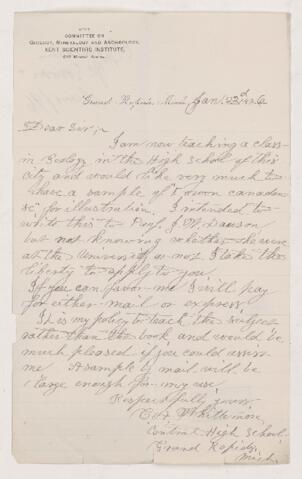 COMMITTEE ON
GEOLOGY, MINERALOGY AND ARCHÆOLOGY,
KENT SCIENTIFIC INSTITUTE,
Grand Rapids, Mich. Jan. 23rd
Dear Sir;-
I am now teaching a class
in Geology in the High School of this
city and would like very much to
have a sample of Eozoon canaden
se for illustration. I intended to
write this to Prof. J. W. Dawson
but not knowing whether he were
at the University or not I take the
liberty to apply to you.
If you can favor me I will pay
for either mail or express
It is my policy to teach the subject
rather than the book and would be
much pleased if you could assist
me. A sample by mail will be
large enough for my use
Respectfully yours
Whittemore,
Central High School.
Grand Rapids,
Mich.